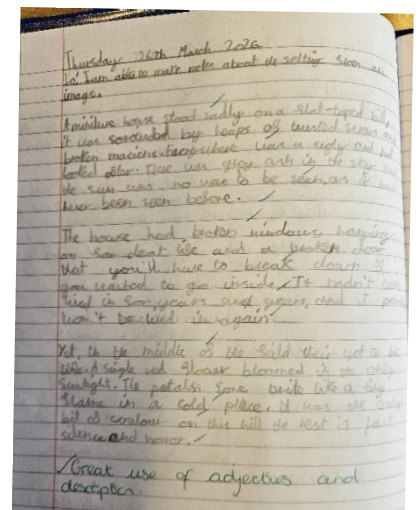 Thursday 26th March 2026
Lo: I am able to make notes about the setting from an
image.
A miniture house stood sadly on a flat-toped hill
it was sorounded by heaps of twisted and
broken
looked after. There was grey ash in the sky and
the sun was no were to be seen, as if
never been seen before.
The house had broken windows, hanging
on for dear life and a broken door
that you'll have to break down if
you wanted to go inside. It hadn't been
lived in for years and years, and it
won't be lived in again.
Yet, in the middle of the
life. A single red flower bloomed in the only
sunlight. The petals brite like a
flame in a cold place. it was the only
bit of coulour on this hill the rest is
silence and
Great use of adjectives and
description.